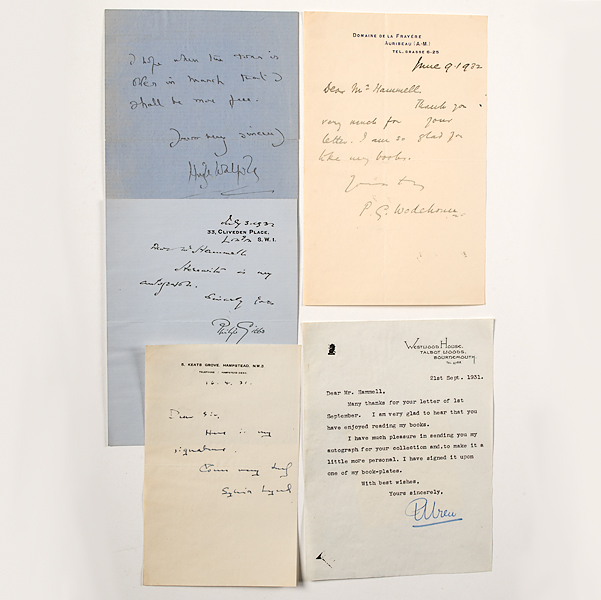 I hope when the
open in March that I
shall be more free.
Yours very sincerely
Hugh Walpole
July 3. 1932
33, CLIVEDEN PLACE,
London S.W.1.
Dear Mr Hammell
Herewith is my
autograph.
Sincerely Yours
Philip Gibbs
5, KEATS GROVE, HAMPSTEAD, N.W.3
16. 4. 31.
Dear Sir,
Here is my
signature.
Yours very truly
Sylvia Lynd
DOMAINE DE LA FRAYÈRE
AURIBEAU (A-M.)
TEL. GRASSE 6-25
June 9. 1932
Dear Mr Hammell.
Thank you
very much for your
letter. I am so glad you
like my books.
Yours truly
P. G. Wodehouse
WESTWOOD HOUSE,
TALBOT WOODS,
BOURNEMOUTH
21st Sept. 1931.
Dear Mr. Hammell.
Many thanks for your letter of 1st
September. I am very glad to hear that you
have enjoyed reading my books.
I have much pleasure in sending you my
autograph for your collection and, to make it a
little more personal, I have signed it upon
one of my book-plates.
With best wishes,
Yours sincerely,
PCWren